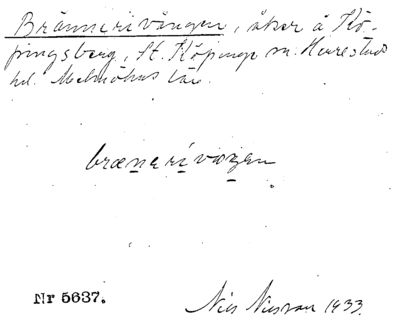 Brännerivången, åker å Kö-
pingsberg, St. Köpinge sn. Herrestads
hd. Malmöhus län.
brænerivaŋen
Nr 5637.
Nils Nilsson 1933.